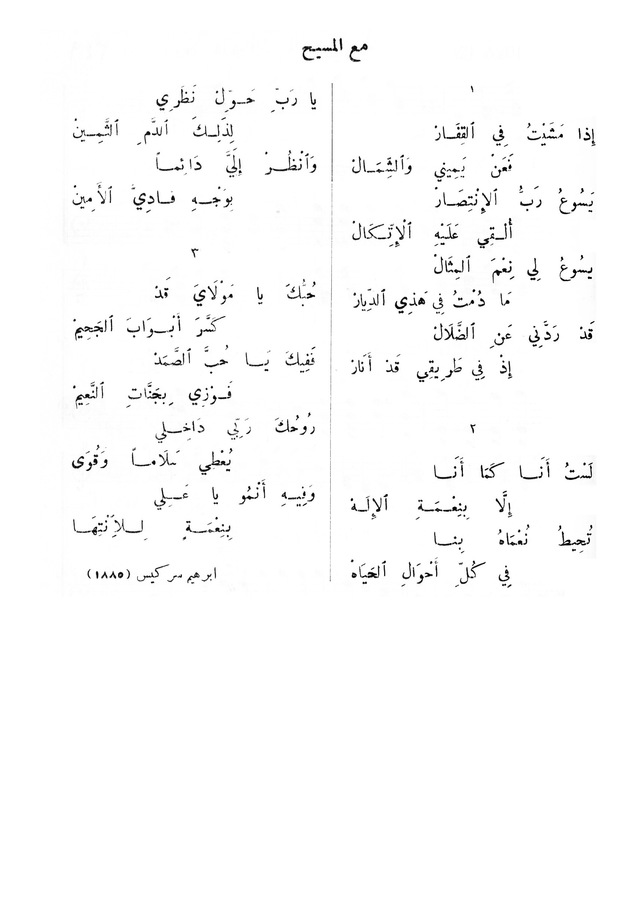 مع المسيح
١
إِذا مَشَيْتُ فِي القِفَـارْ
فَعَنْ يَمِيني وَالشِّمَـالْ
يَسُوعُ رَبُّ الإِنْتِصَـارْ
أُلْـقِي عَلَيْهِ الْإِتِّـكَالْ
يسُوعُ لِي نِعْمَ المِثَالْ
مَا دُمْتُ فِي هَذِي الدِّيَارْ
قَدْ رَدَّنِي عَنِ الضَّلَالْ
إِذْ فِي طَرِيقِي قَدْ أَنَارْ
٢
لَسْتُ أَنَـا كَمَا أَنَـا
إِلَّا بِنِعْـمَـةِ الإِلَـهْ
تُحِيطُ نُعْمَاهُ بِنـا
فِي كُلِّ أَحْوَالِ الحَيَاهْ
يا رَبِّ حَـوِّلْ نَظَرِي
لِذَلِـكَ الدَّمِ الثَّمِـينْ
وَانْظُـرْ إِلَيَّ دَائِمـاً
بِوَجْـهِ فـادِيَّ الأَمِينْ
٣
حُبُّكَ يا مَوْلَايَ قَدْ
كَسَّرَ أَبْـوَابَ الجَحِيمْ
فَفِيكَ يَـا حُبَّ الصَّمَدْ
فَـوْزِي بِجَنَّاتِ النَّعِيمْ
رُوحُكَ رَبِّي دَاخِـلي
يُعْطِي سَلَامـاً وَقُوَى
وَفِيـهِ أَنْمُو يا عَـلِي
بِنِعْمَـةٍ لِـلاِنْتِهَـا
ابرهيم سركيس (١٨٨٥)